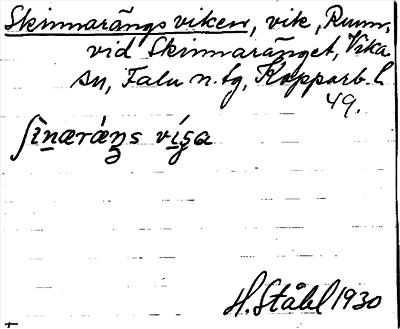 Skinnarängsviken, vik, Runn,
vid Skinnaränget, Vika
sn, Falu n. tg, Kopparb. l.
49.
ʃìnæráŋs víga
H. Ståhl 1930